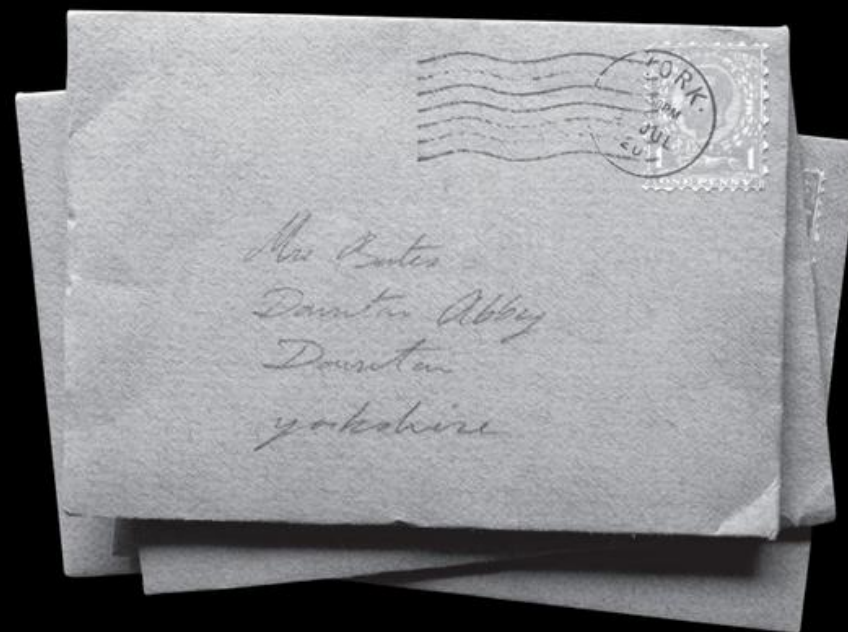 YORK.
PM
JUL
20
Mrs Bates
Downton Abbey
Downton
yorkshire